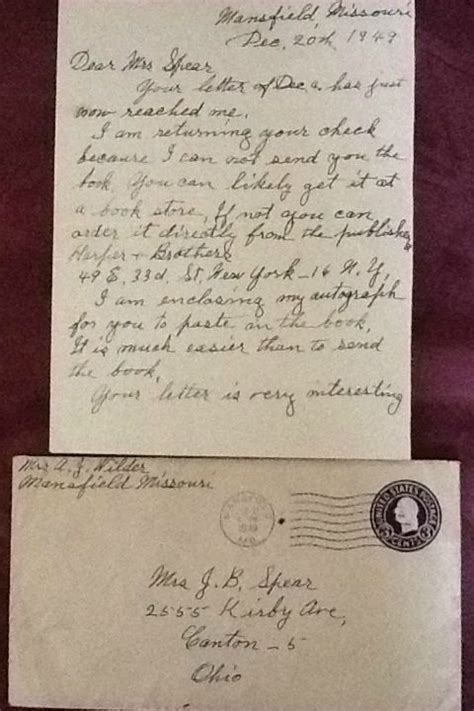 Mansfield, Missouri
Dec, 20th 1949
Dear Mrs Spear
Your letter of Dec has just
now reached me.
I am returning your check
because I can not send you the
book, You can likely get it at
a book store, If not you can
order it directly from the publisher
Harper & Brothers
49 E, 33d, St, New York - 16 N. Y,
I am enclosing my autograph
for you to paste in the book,
It is much easier than to send
the book,
Your letter is very interesting
Mrs A. J. Wilder
Mansfield Missouri
MANSFIELD
1949
MO.
UNITED STATES POSTAGE
3 CENTS 3
Mrs J. B. Spear
2555 Kirby Ave,
Canton - 5
Ohio